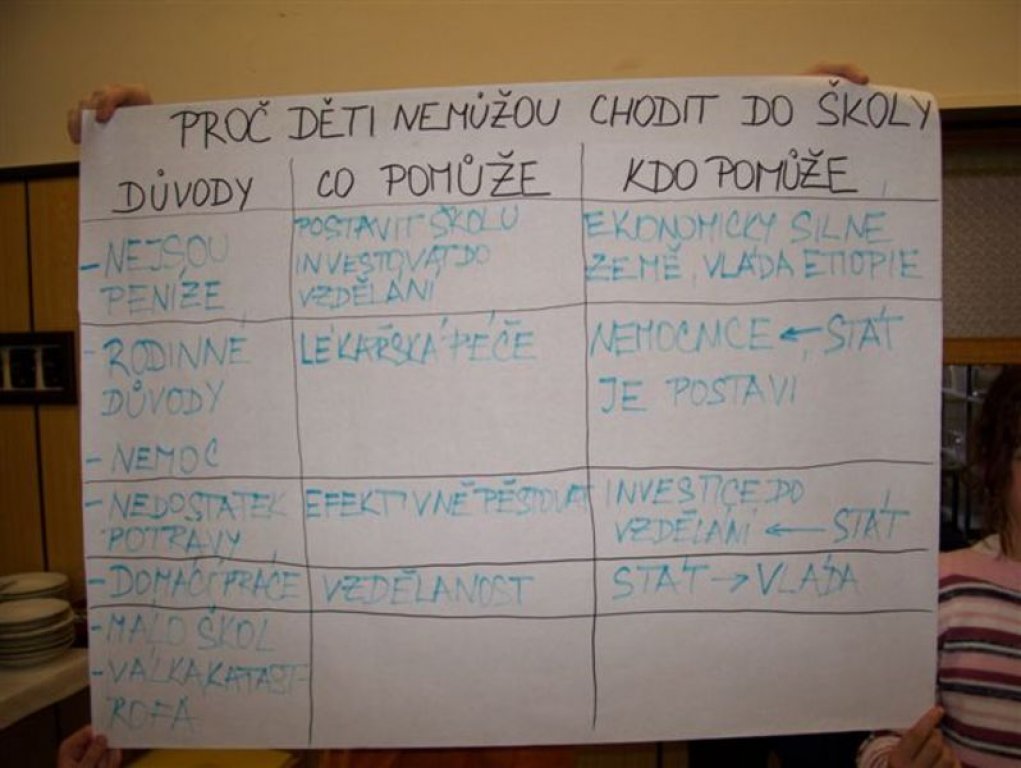 PROČ DĚTI NEMŮŽOU CHODIT DO ŠKOLY
DŮVODY
CO POMŮŽE
KDO POMŮŽE
- NEJSOU
PENÍZE
POSTAVIT ŠKOLU
INVESTOVAT DO
VZDĚLÁNÍ
EKONOMICKY SILNÉ
ZEMĚ, VLÁDA ETIOPIE
- RODINNÉ
DŮVODY
- NEMOC
LÉKAŘSKÁ PÉČE
NEMOCNICE ← STÁT
JE POSTAVÍ
- NEDOSTATEK
POTRAVY
EFEKTIVNĚ PĚSTOVAT
INVESTICE DO
VZDĚLÁNÍ ← STÁT
- DOMÁCÍ PRÁCE
VZDĚLANOST
STÁT → VLÁDA
- MÁLO ŠKOL
- VÁLKA KATAST-
ROFA